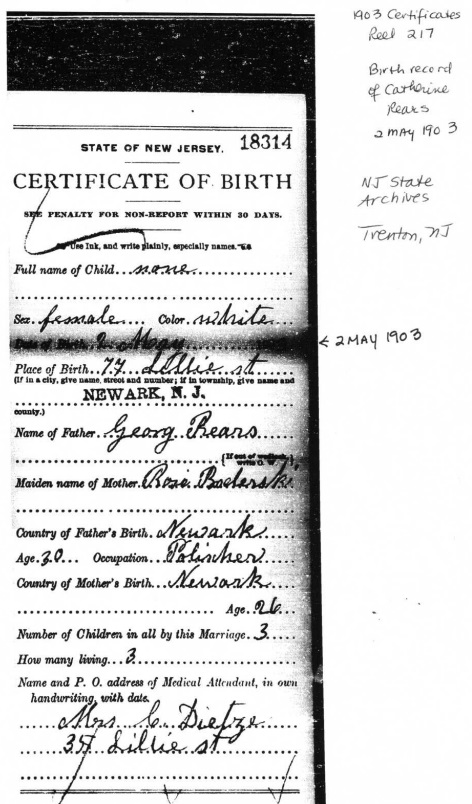 1903 Certificates
Reel 217
Birth record
of Catherine
Rears
2 MAY 1903
NJ State
Archives
Trenton, NJ
← 2 MAY 1903
STATE OF NEW JERSEY. 18314
CERTIFICATE OF BIRTH
SEE PENALTY FOR NON-REPORT WITHIN 30 DAYS.
Use Ink, and write plainly, especially names.
Full name of Child none
Sex female Color white
Date of Birth 2 May
Place of Birth 77 Lillie st
(If in a city, give name, street and number; if in township, give name and
NEWARK, N. J.
county.)
Name of Father Georg Rears
(If out of wedlock, write O. W.)
Maiden name of Mother Rosa
Country of Father's Birth Newark
Age 30 Occupation Polisher
Country of Mother's Birth Newark
Age 26
Number of Children in all by this Marriage 3
How many living 3
Name and P. O. address of Medical Attendant, in own
handwriting, with date.
Mrs C. Dietze
Lillie st